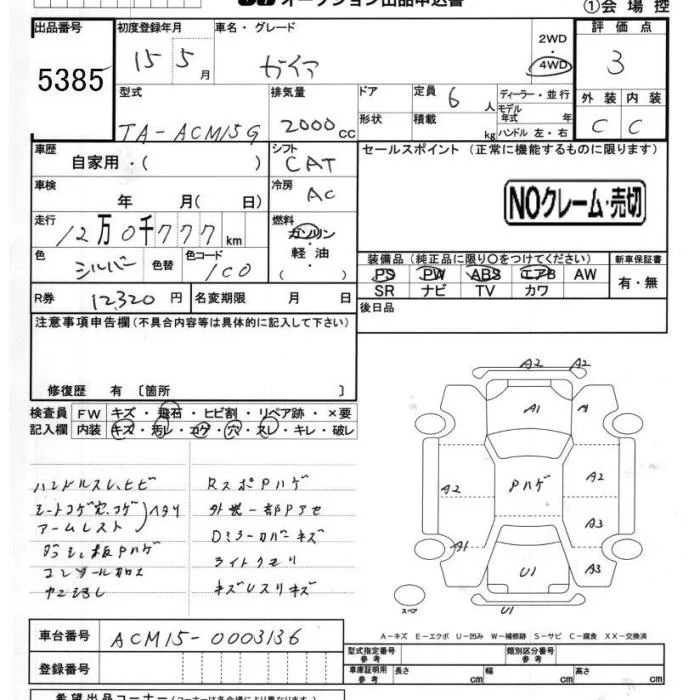 オークション出品申込書
①会場控
出品番号
5385
初度登録年月
15 5月
車名・グレード
ガイア
2WD
・
4WD
評価点
3
型式
TA-ACM15G
排気量
2000cc
ドア
定員
6人
形状
積載
kg
ディーラー・並行
モデル年式 年
ハンドル 左・右
外装 内装
C C
車歴
自家用・( )
シフト
CAT
セールスポイント (正常に機能するものに限ります)
車検
年 月( 日)
冷房
AC
NOクレーム・売切
走行
12万0千777km
燃料
ガソリン
軽油
( )
色
シルバー
色替
色コード
1C0
装備品(純正品に限り○をつけてください)
新車保証書
PS PW ABS エアB AW
SR ナビ TV カワ
有・無
R券 12,320円
名変期限 月 日
後日品
注意事項申告欄(不具合内容等は具体的に記入して下さい)
修復歴 有〔箇所 〕
検査員記入欄
FW キズ・飛石・ヒビ割・リペア跡・×要
内装 キズ・汚レ・コゲ・穴・スレ・キレ・破レ
ハンドルスレ、ヒビ
シートコゲ穴、コゲ
アームレスト
ヘタリ
ダッシュ板Pハゲ
RスポPハゲ
外装一部Pアセ
Dミラーカバーキズ
ライトクモリ
キズUスリキズ
A2 A2
A1 A1
A2 Pハゲ A2
A3
A1 U1 A3
U1
スペア
A-キズ E-エクボ U-凹み W-補修跡 S-サビ C-腐食 XX-交換済
車台番号 ACM15-0003136
登録番号
型式指定番号 参考
類別区分番号 参考
車庫証明用 参考
長さ cm 幅 cm 高さ cm
希望出品コーナー(コーナーは各会場により異なります。)